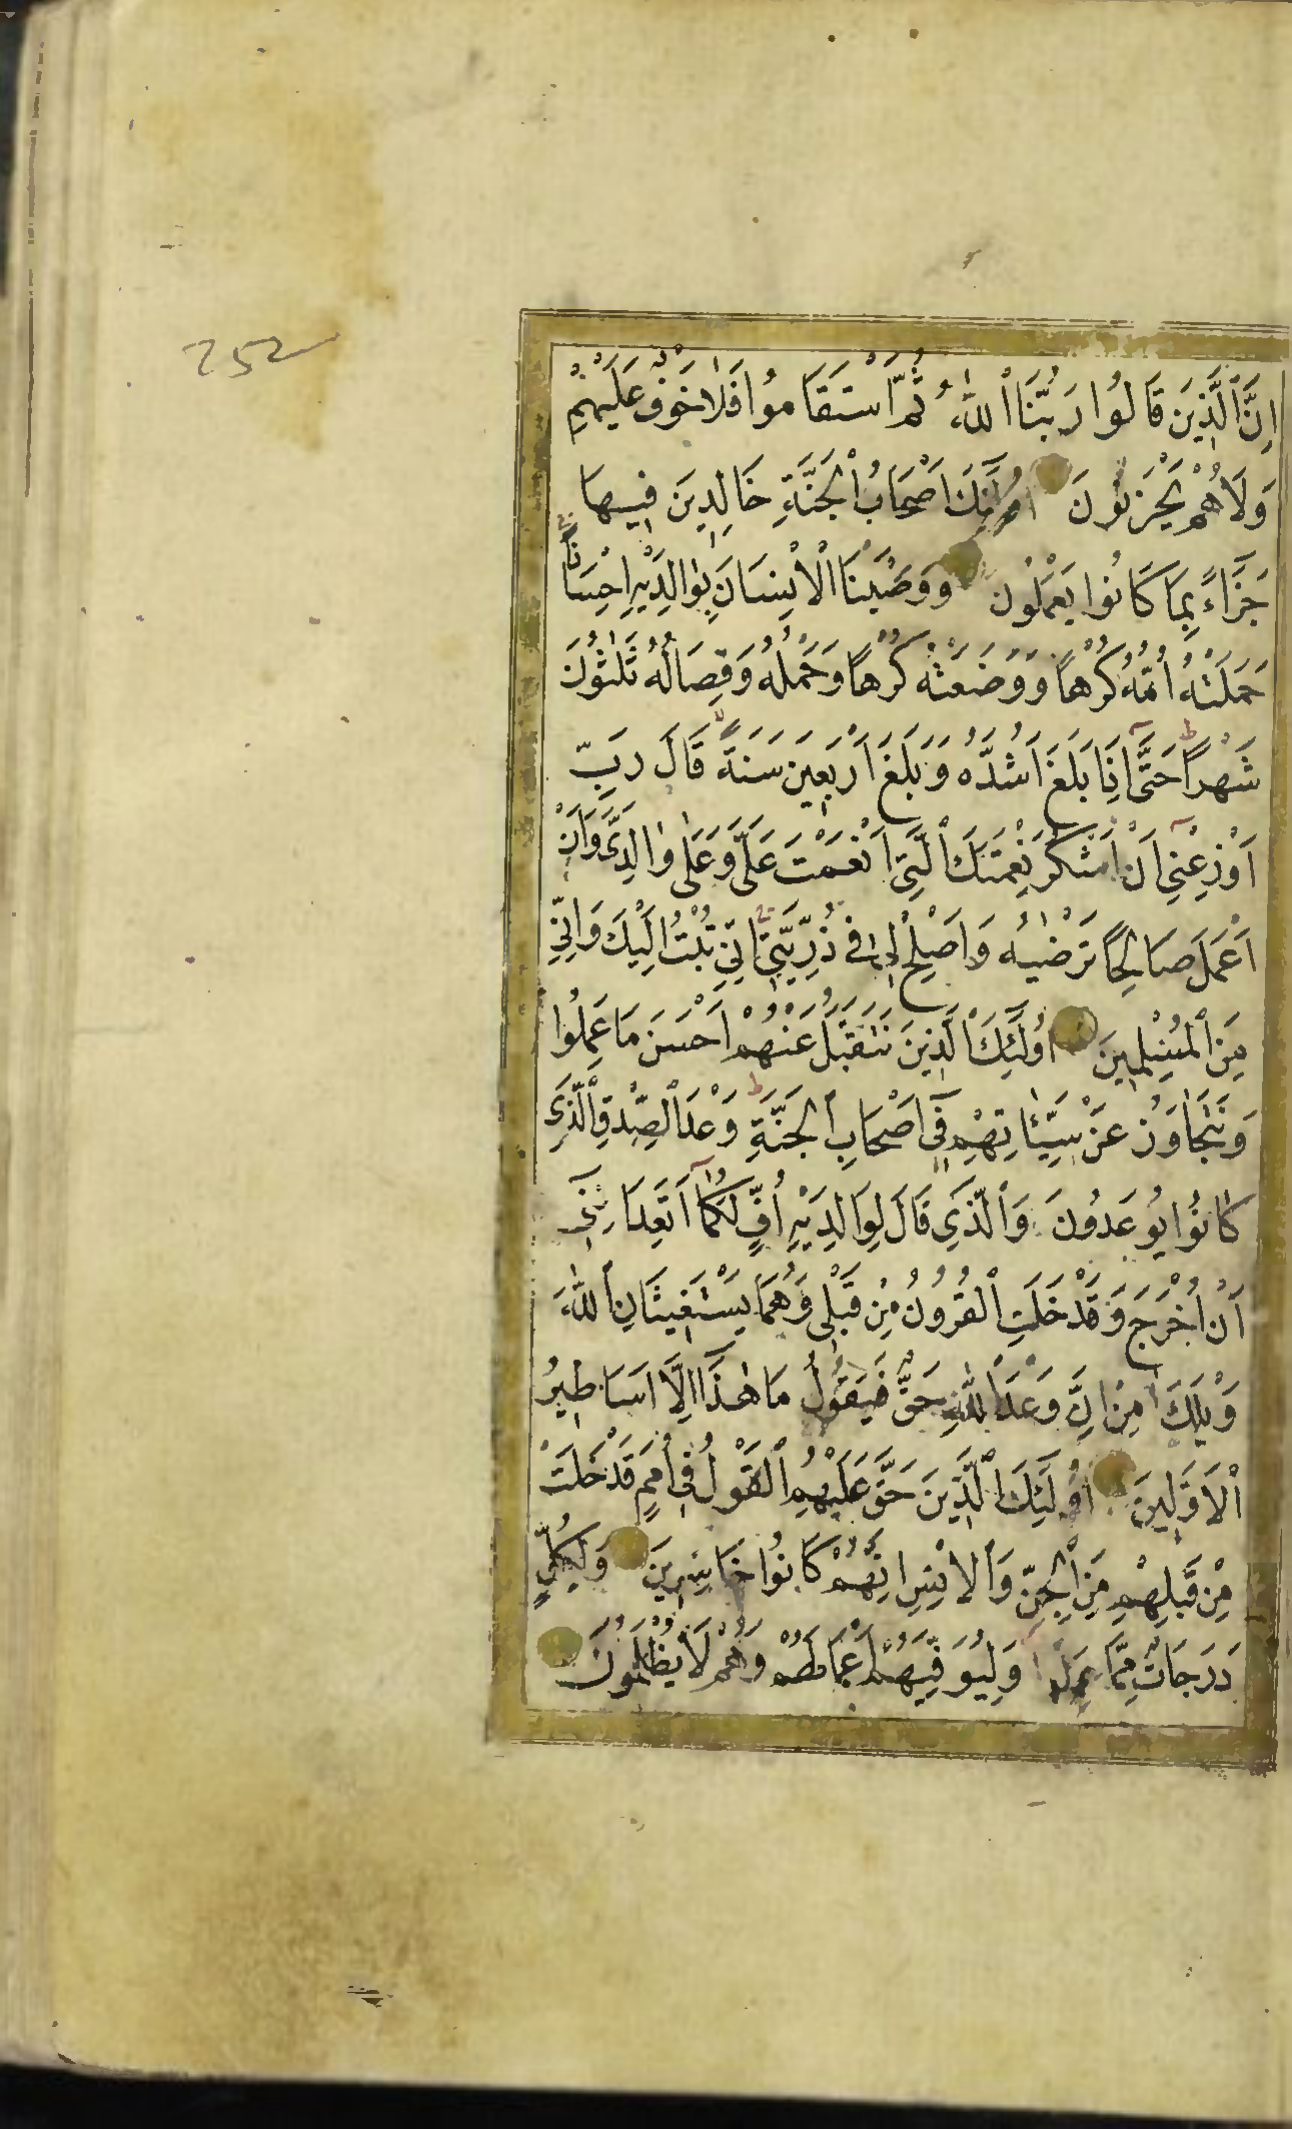 252
اِنَّ ٱلَّذِينَ قَالُوا رَبُّنَا ٱللّٰهُ ثُمَّ ٱسْتَقَامُوا فَلَا خَوْفٌ عَلَيْهِمْ
وَلَا هُمْ يَحْزَنُونَ اُولٰٓئِكَ اَصْحَابُ ٱلْجَنَّةِ خَالِدِينَ فِيهَا
جَزَٓاءً بِمَا كَانُوا يَعْمَلُونَ وَوَصَّيْنَا ٱلْاِنْسَانَ بِوَالِدَيْهِ اِحْسَانًا
حَمَلَتْهُ اُمُّهُ كُرْهًا وَوَضَعَتْهُ كُرْهًا وَحَمْلُهُ وَفِصَالُهُ ثَلٰثُونَ
شَهْرًا حَتّٰٓى اِذَا بَلَغَ اَشُدَّهُ وَبَلَغَ اَرْبَعِينَ سَنَةً قَالَ رَبِّ
اَوْزِعْنِٓي اَنْ اَشْكُرَ نِعْمَتَكَ ٱلَّتِٓي اَنْعَمْتَ عَلَيَّ وَعَلٰى وَالِدَيَّ وَاَنْ
اَعْمَلَ صَالِحًا تَرْضٰيهُ وَاَصْلِحْ لِي فِي ذُرِّيَّتِي اِنِّي تُبْتُ اِلَيْكَ وَاِنِّي
مِنَ ٱلْمُسْلِمِينَ اُولٰٓئِكَ ٱلَّذِينَ نَتَقَبَّلُ عَنْهُمْ اَحْسَنَ مَا عَمِلُوا
وَنَتَجَاوَزُ عَنْ سَيِّـَٔاتِهِمْ فِٓي اَصْحَابِ ٱلْجَنَّةِ وَعْدَ ٱلصِّدْقِ ٱلَّذِي
كَانُوا يُوعَدُونَ وَٱلَّذِي قَالَ لِوَالِدَيْهِ اُفٍّ لَكُمَٓا اَتَعِدَانِنِٓي
اَنْ اُخْرَجَ وَقَدْ خَلَتِ ٱلْقُرُونُ مِنْ قَبْلِي وَهُمَا يَسْتَغِيثَانِ ٱللّٰهَ
وَيْلَكَ اٰمِنْ اِنَّ وَعْدَ ٱللّٰهِ حَقٌّ فَيَقُولُ مَا هٰذَٓا اِلَّٓا اَسَاطِيرُ
ٱلْاَوَّلِينَ اُولٰٓئِكَ ٱلَّذِينَ حَقَّ عَلَيْهِمُ ٱلْقَوْلُ فِٓي اُمَمٍ قَدْ خَلَتْ
مِنْ قَبْلِهِمْ مِنَ ٱلْجِنِّ وَٱلْاِنْسِ اِنَّهُمْ كَانُوا خَاسِرِينَ وَلِكُلٍّ
دَرَجَاتٌ مِمَّا عَمِلُوا وَلِيُوَفِّيَهُمْ اَعْمَالَهُمْ وَهُمْ لَا يُظْلَمُونَ